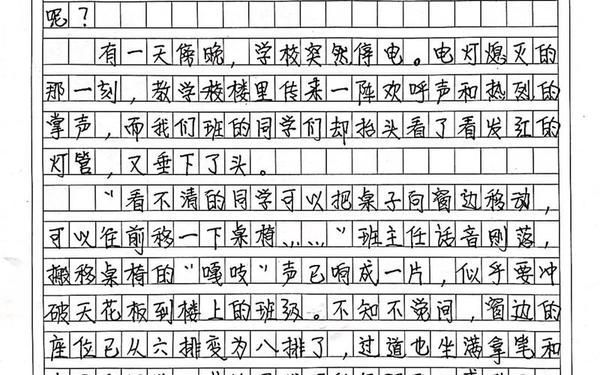 呢？
有一天傍晚，学校突然停电。电灯熄灭的
那一刻，教学楼里传来一阵欢呼声和热烈的
掌声，而我们班的同学们却抬头看了看发红的
灯管，又垂下了头。
“看不清的同学可以把桌子向窗边移动，
可以往前移一下桌椅……”班主任话音刚落，
搬移桌椅的“嘎吱”声已响成一片，似乎要冲
破天花板到楼上的班级。不知不觉间，窗边的
座位已从六排变为八排了，过道也坐满拿笔和